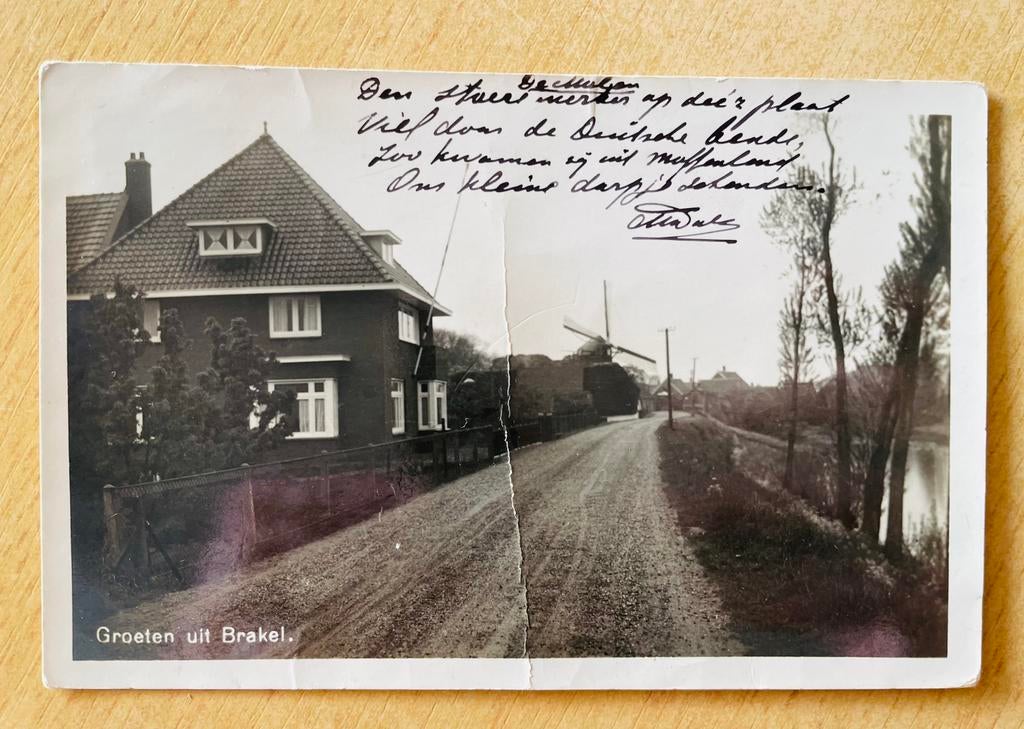 De Molen
Den stoere werker op dee'z plaat
Viel door de Duitsche bende,
Zoo kwamen zij uit Moffenland
Ons kleine dorpje schenden.
Groeten uit Brakel.